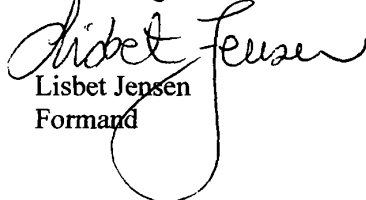 Lisbet Jensen
Lisbet Jensen
Formand